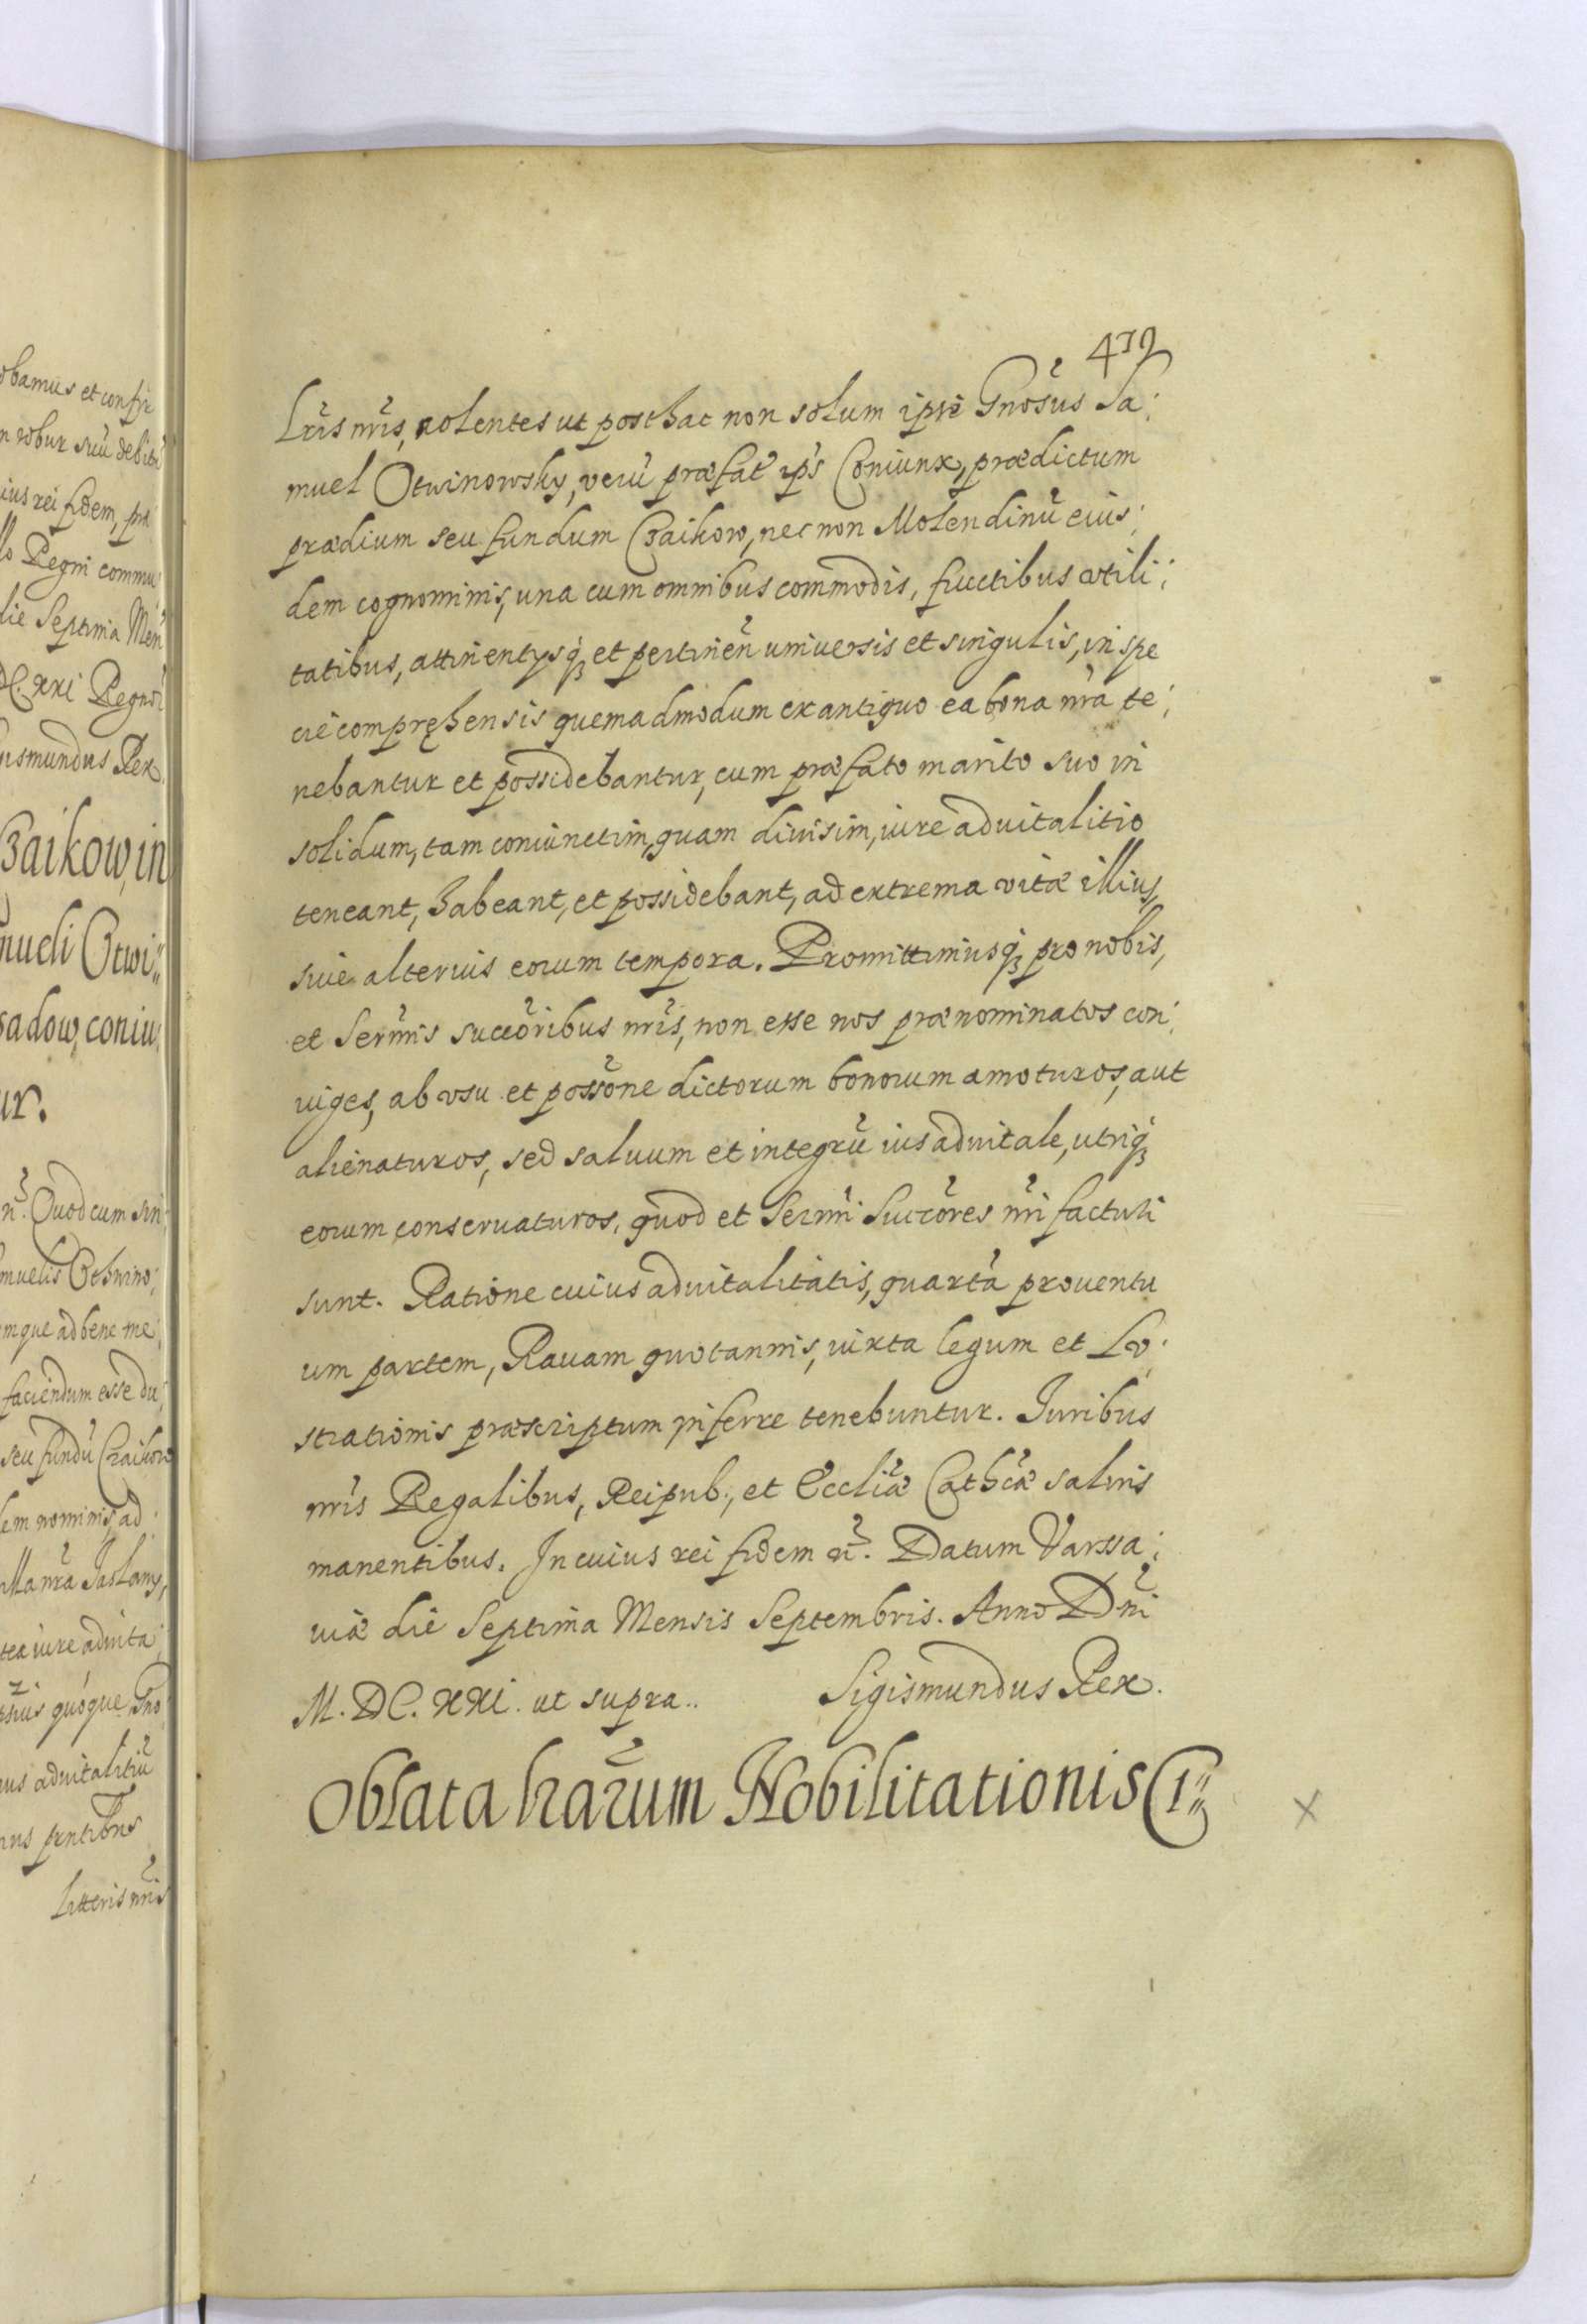 obamus et confir
n robur suū debitū
ius rei fidem, prę
llo Regni commu
die Septima Men
DC. XXI Regnor
gismundus Rex.
Czaikow, in
mueli Otwi
sadow, coniu
ur.
n̄. Quod cum sin
muelis Othwino
mque ad bene me
faciendum esse du
seu fundū Czaikow
dem nominis, ad
Manr̄a Jaslany,
tea iure advita
quoque Gno
ius advitalitiū
pn̄tibus
Litteris nr̄is
432
Lr̄is nr̄is, volentes ut posthac non solum ipse Gnōsus Sa:
muel Otwinowsky, verū præfat̄ ip̄s Coniunx, prædictum
prædium seu fundum Czaikow, nec non Molendinū eius:
dem cognominis, una cum omnibus commodis, fructibus vtili:
tatibus, attinentysq́; et pertinen̄ universis et singulis, in spe
cie compręhensis quemadmodum ex antiquo ea bona nr̄a te:
nebantur et possidebantur, cum præfato marito suo in
solidum, tam coniunctim, quam divisim, iure advitalitio
teneant, habeant, et possidebant, ad extrema vitæ illius,
sive alterius eorum tempora. Promittimusq́; pro nobis,
et Serm̄is succōribus nr̄is, non esse nos prænominatos con:
iuges, ab vsu et possōne dictorum bonorum amoturos, aut
alienaturos, sed saluum et integrū ius advitale, utriq́;
eorum conservaturos, quod et Serm̄i Succōres nr̄i facturi
sunt. Ratione cuius advitalitatis, quartā proventu
um partem, Ravam quotannis, iuxta legum et Lv:
strationis præscriptum inferre tenebuntur. Juribus
nr̄is Regalibus, Reipub:, et Eccliæ Cathcæ salvis
manentibus. In cuius rei fidem n̄. Datum Varssa:
viæ die Septima Mensis Septembris. Anno Dn̄i
M. DC. XXI. ut supra.. Sigismundus Rex.
Oblata lrārum Nobilitationis Cr